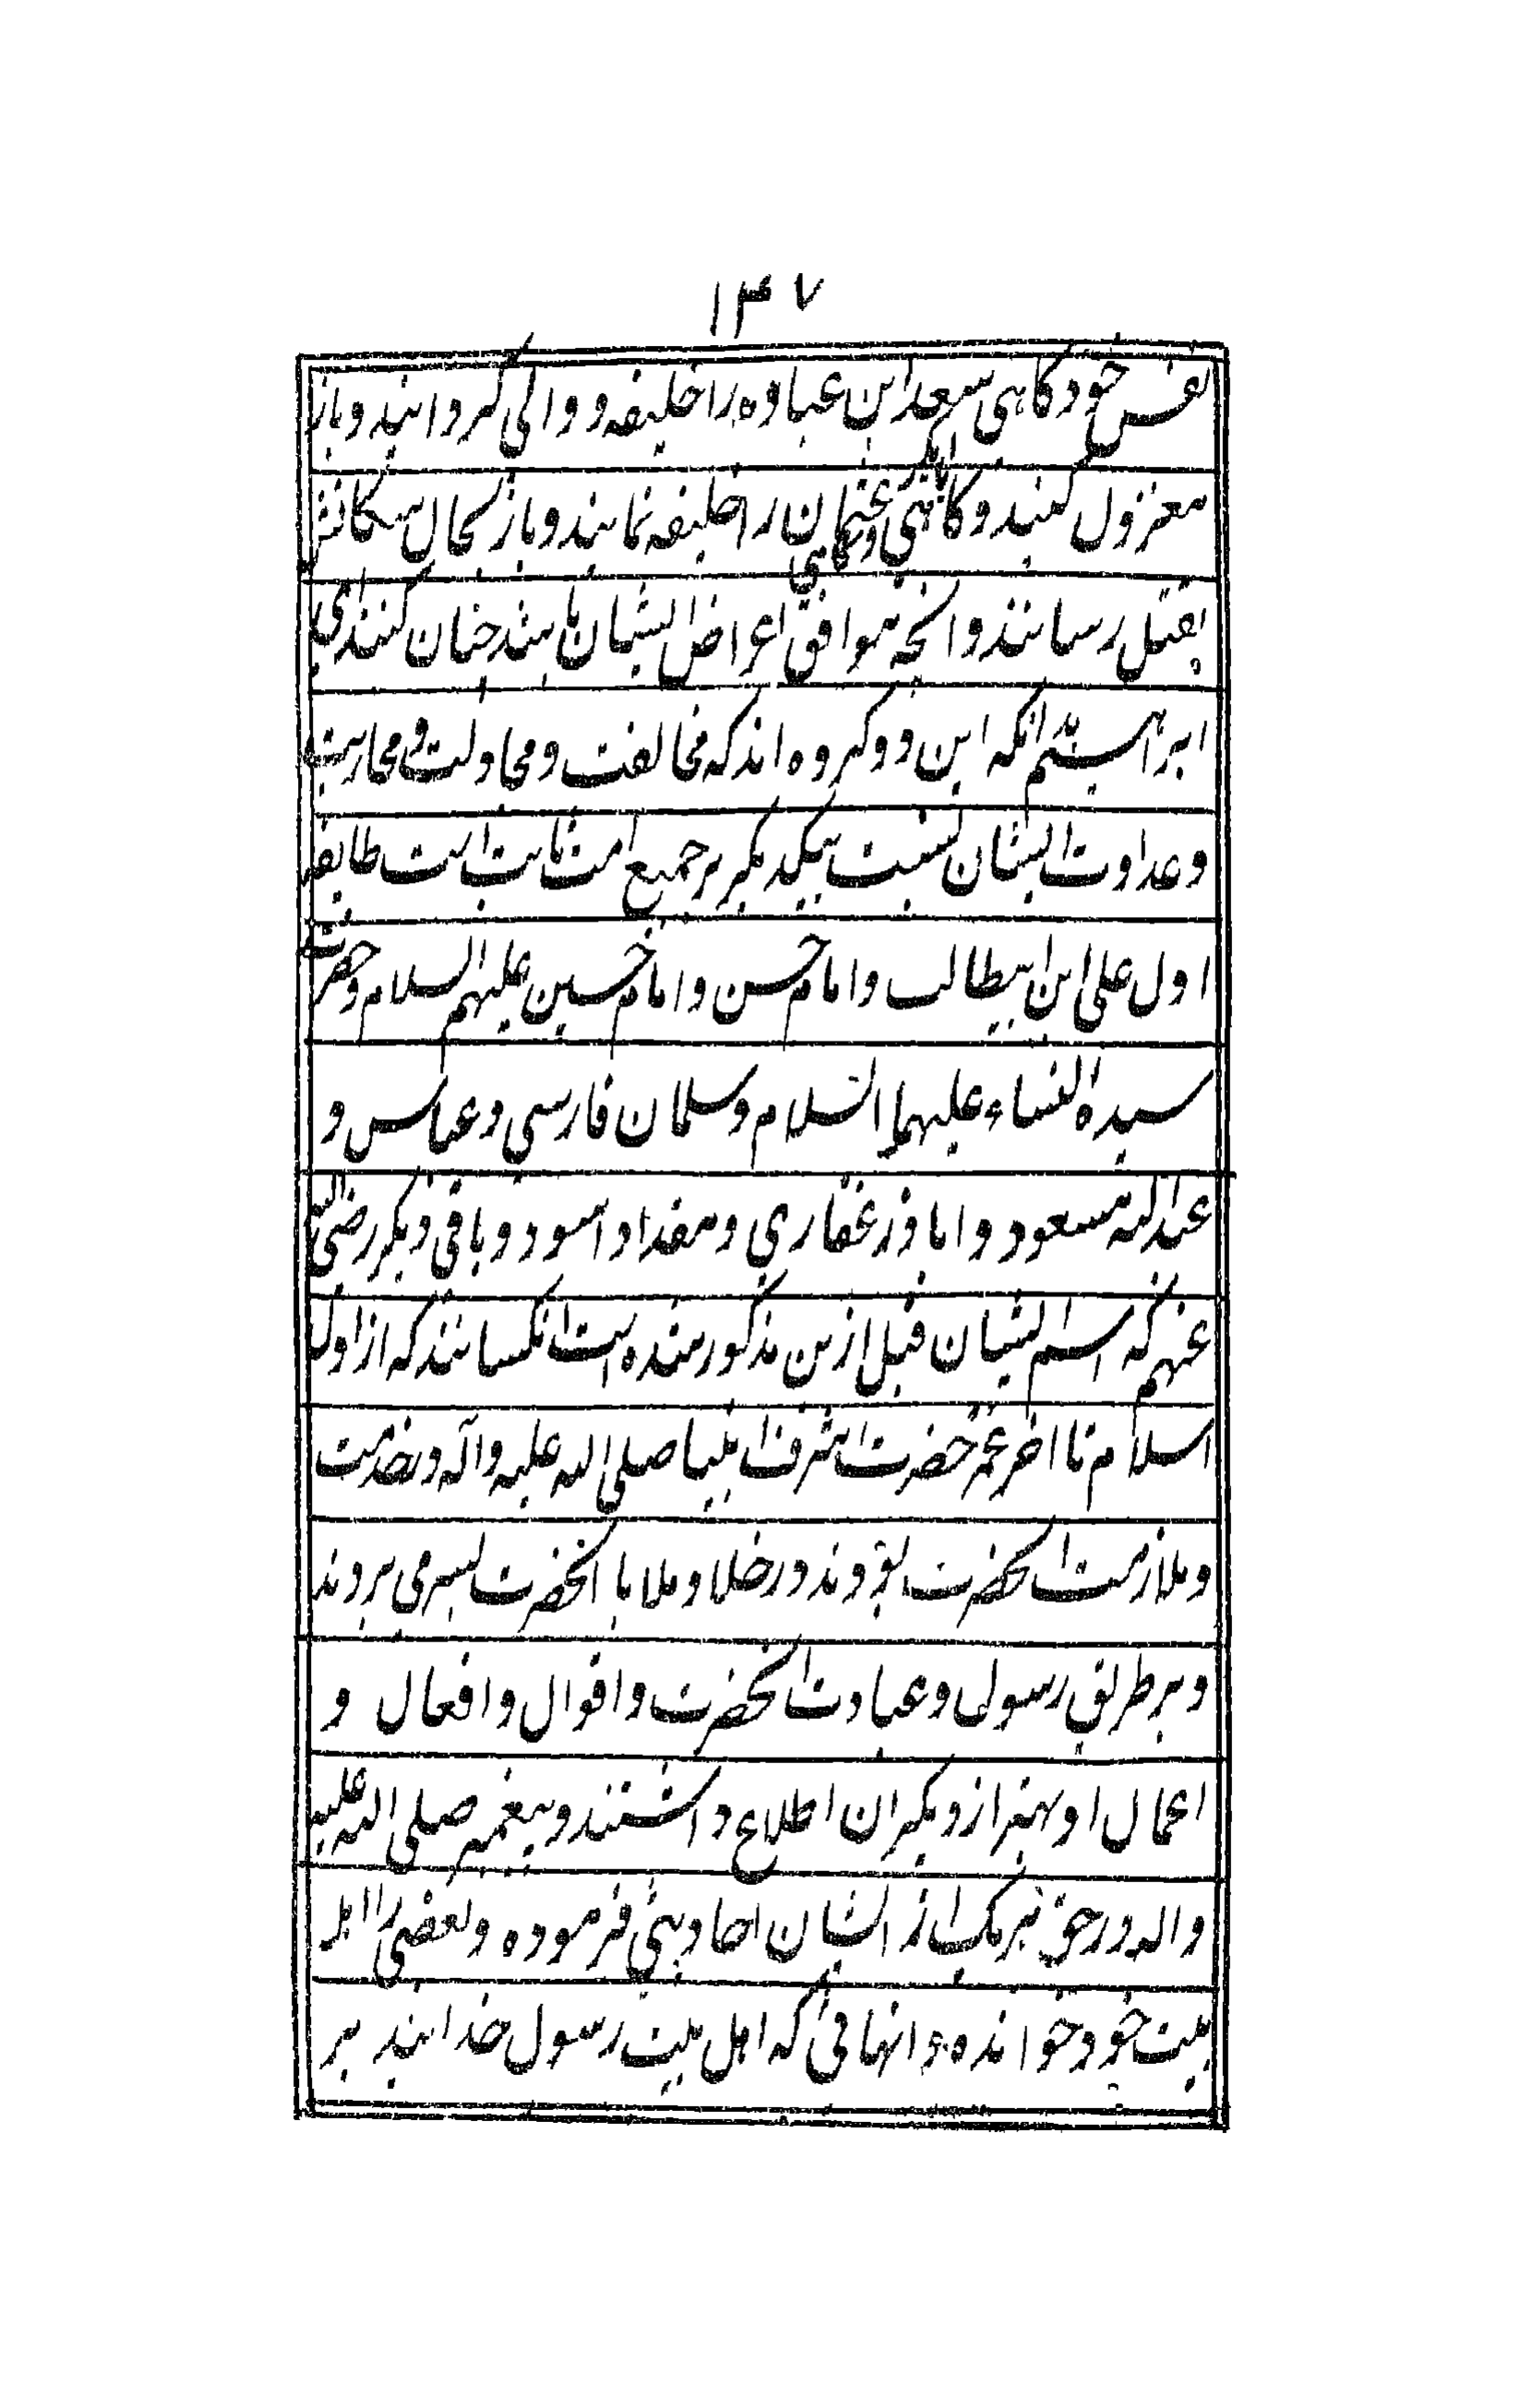 ۱۴۷
نفس خود کاهی سعد ابن عباده را خلیفه و والی کردانند و باز
معزول کنند و کاهی ابابکر و کاهی عثمان را خلیفه نمایند و باز بحال سکانش
بقتل رسانند و انچه موافق اعراض ایشان باشد چنان کنند ای
ابراهیم انکه این دو کروه اند که مخالفت و مجادلت و محاربت
و عداوت ایشان نسبت بیکدیکر بر جمیع امت ثابت است طایفه
اول علی ابن ابیطالب و امام حسن و امام حسین علیهم السلام و حضرت
سیدة النساء علیهما السلام و سلمان فارسی و عباس و
عبدالله مسعود و اباذر غفاری و مقداد اسود و باقی دیکر رضی الله
عنهم که اسم ایشان قبل ازین مذکور شده است انکسانند که از اول
اسلام تا اخر عمر حضرت اشرف انبیا صلی الله علیه و آله در خدمت
و ملازمت انحضرت بودند و در خلا و ملا با انحضرت بسر می بردند
و بر طریق رسول و عبادت انحضرت و اقوال و افعال و
اعمال او بهتر از دیکران اطلاع داشتند و پیغمبر صلی الله علیه
واله در حق هریک از ایشان احادیثی فرموده و بعضی را اهل
بیت خود خوانده و انهائی که اهل بیت رسول خدایند بر